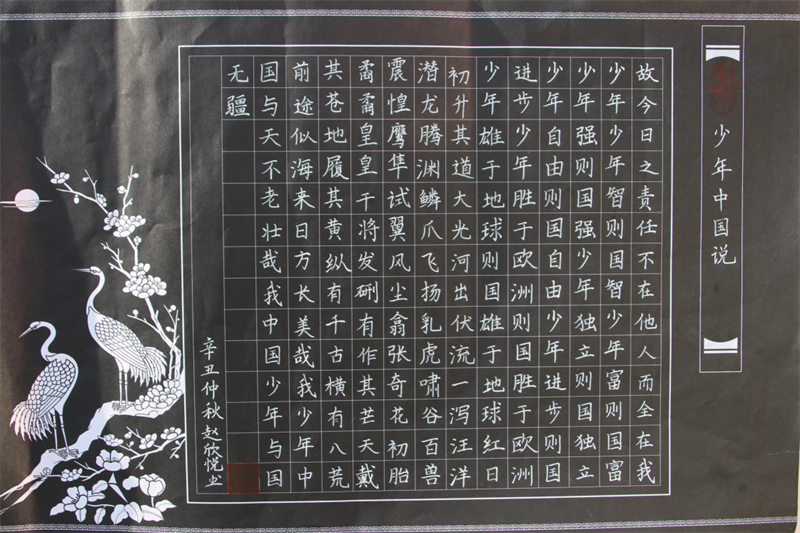 少年中国说
故今日之责任不在他人而全在我
少年少年智则国智少年富则国富
少年强则国强少年独立则国独立
少年自由则国自由少年进步则国
进步少年胜于欧洲则国胜于欧洲
少年雄于地球则国雄于地球红日
初升其道大光河出伏流一泻汪洋
潜龙腾渊鳞爪飞扬乳虎啸谷百兽
震惶鹰隼试翼风尘翕张奇花初胎
矞矞皇皇干将发硎有作其芒天戴
其苍地履其黄纵有千古横有八荒
前途似海来日方长美哉我少年中
国与天不老壮哉我中国少年与国
无疆
辛丑仲秋赵欣悦书